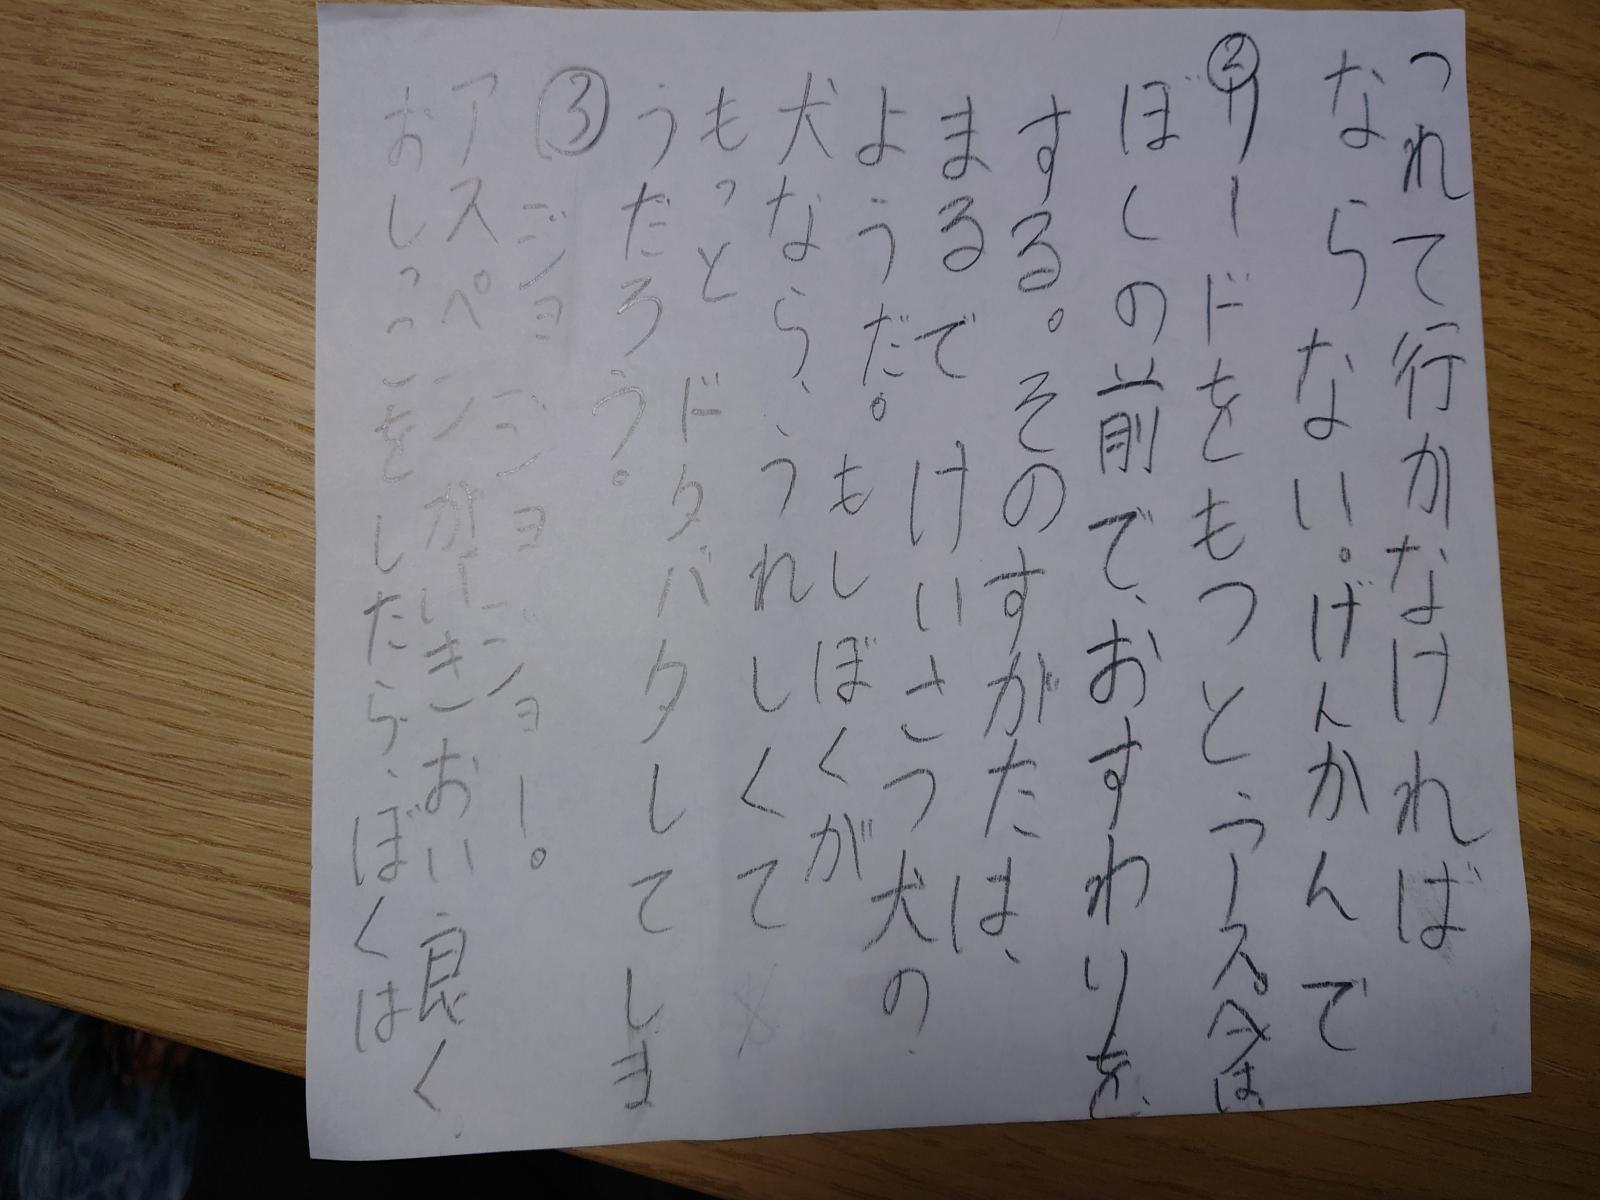 つれて行かなければ
ならない。げんかんで
②リードをもつと、アースペは
ぼくの前で、おすわりを
する。そのすがたは、
まるで けいさつ犬の
ようだ。もしぼくが
犬なら、うれしくて
もっと ドタバタして
しまうだろう。
③ジョジョジョー。
アスペンがいきおい良く
おしっこをしたら、ぼくは